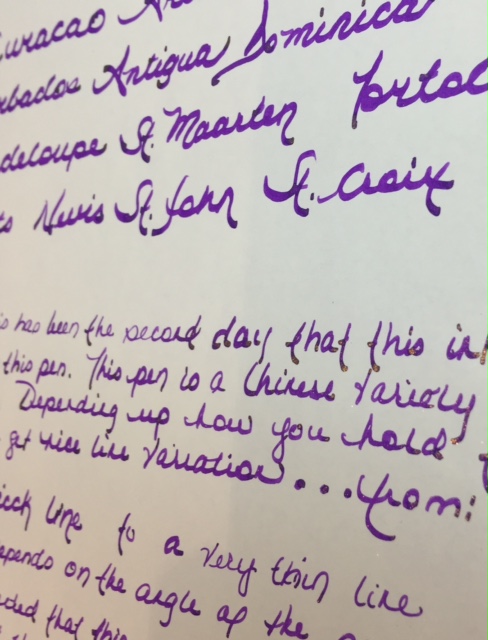 Curacao
Antigua Dominica
St. Maarten
Nevis St. John St. Croix
has been the second day that this
this pen. This pen is a Chinese Variety
Depending up how you hold
get nice line variation...from:
line to a very thin line
on the angle of the
that this